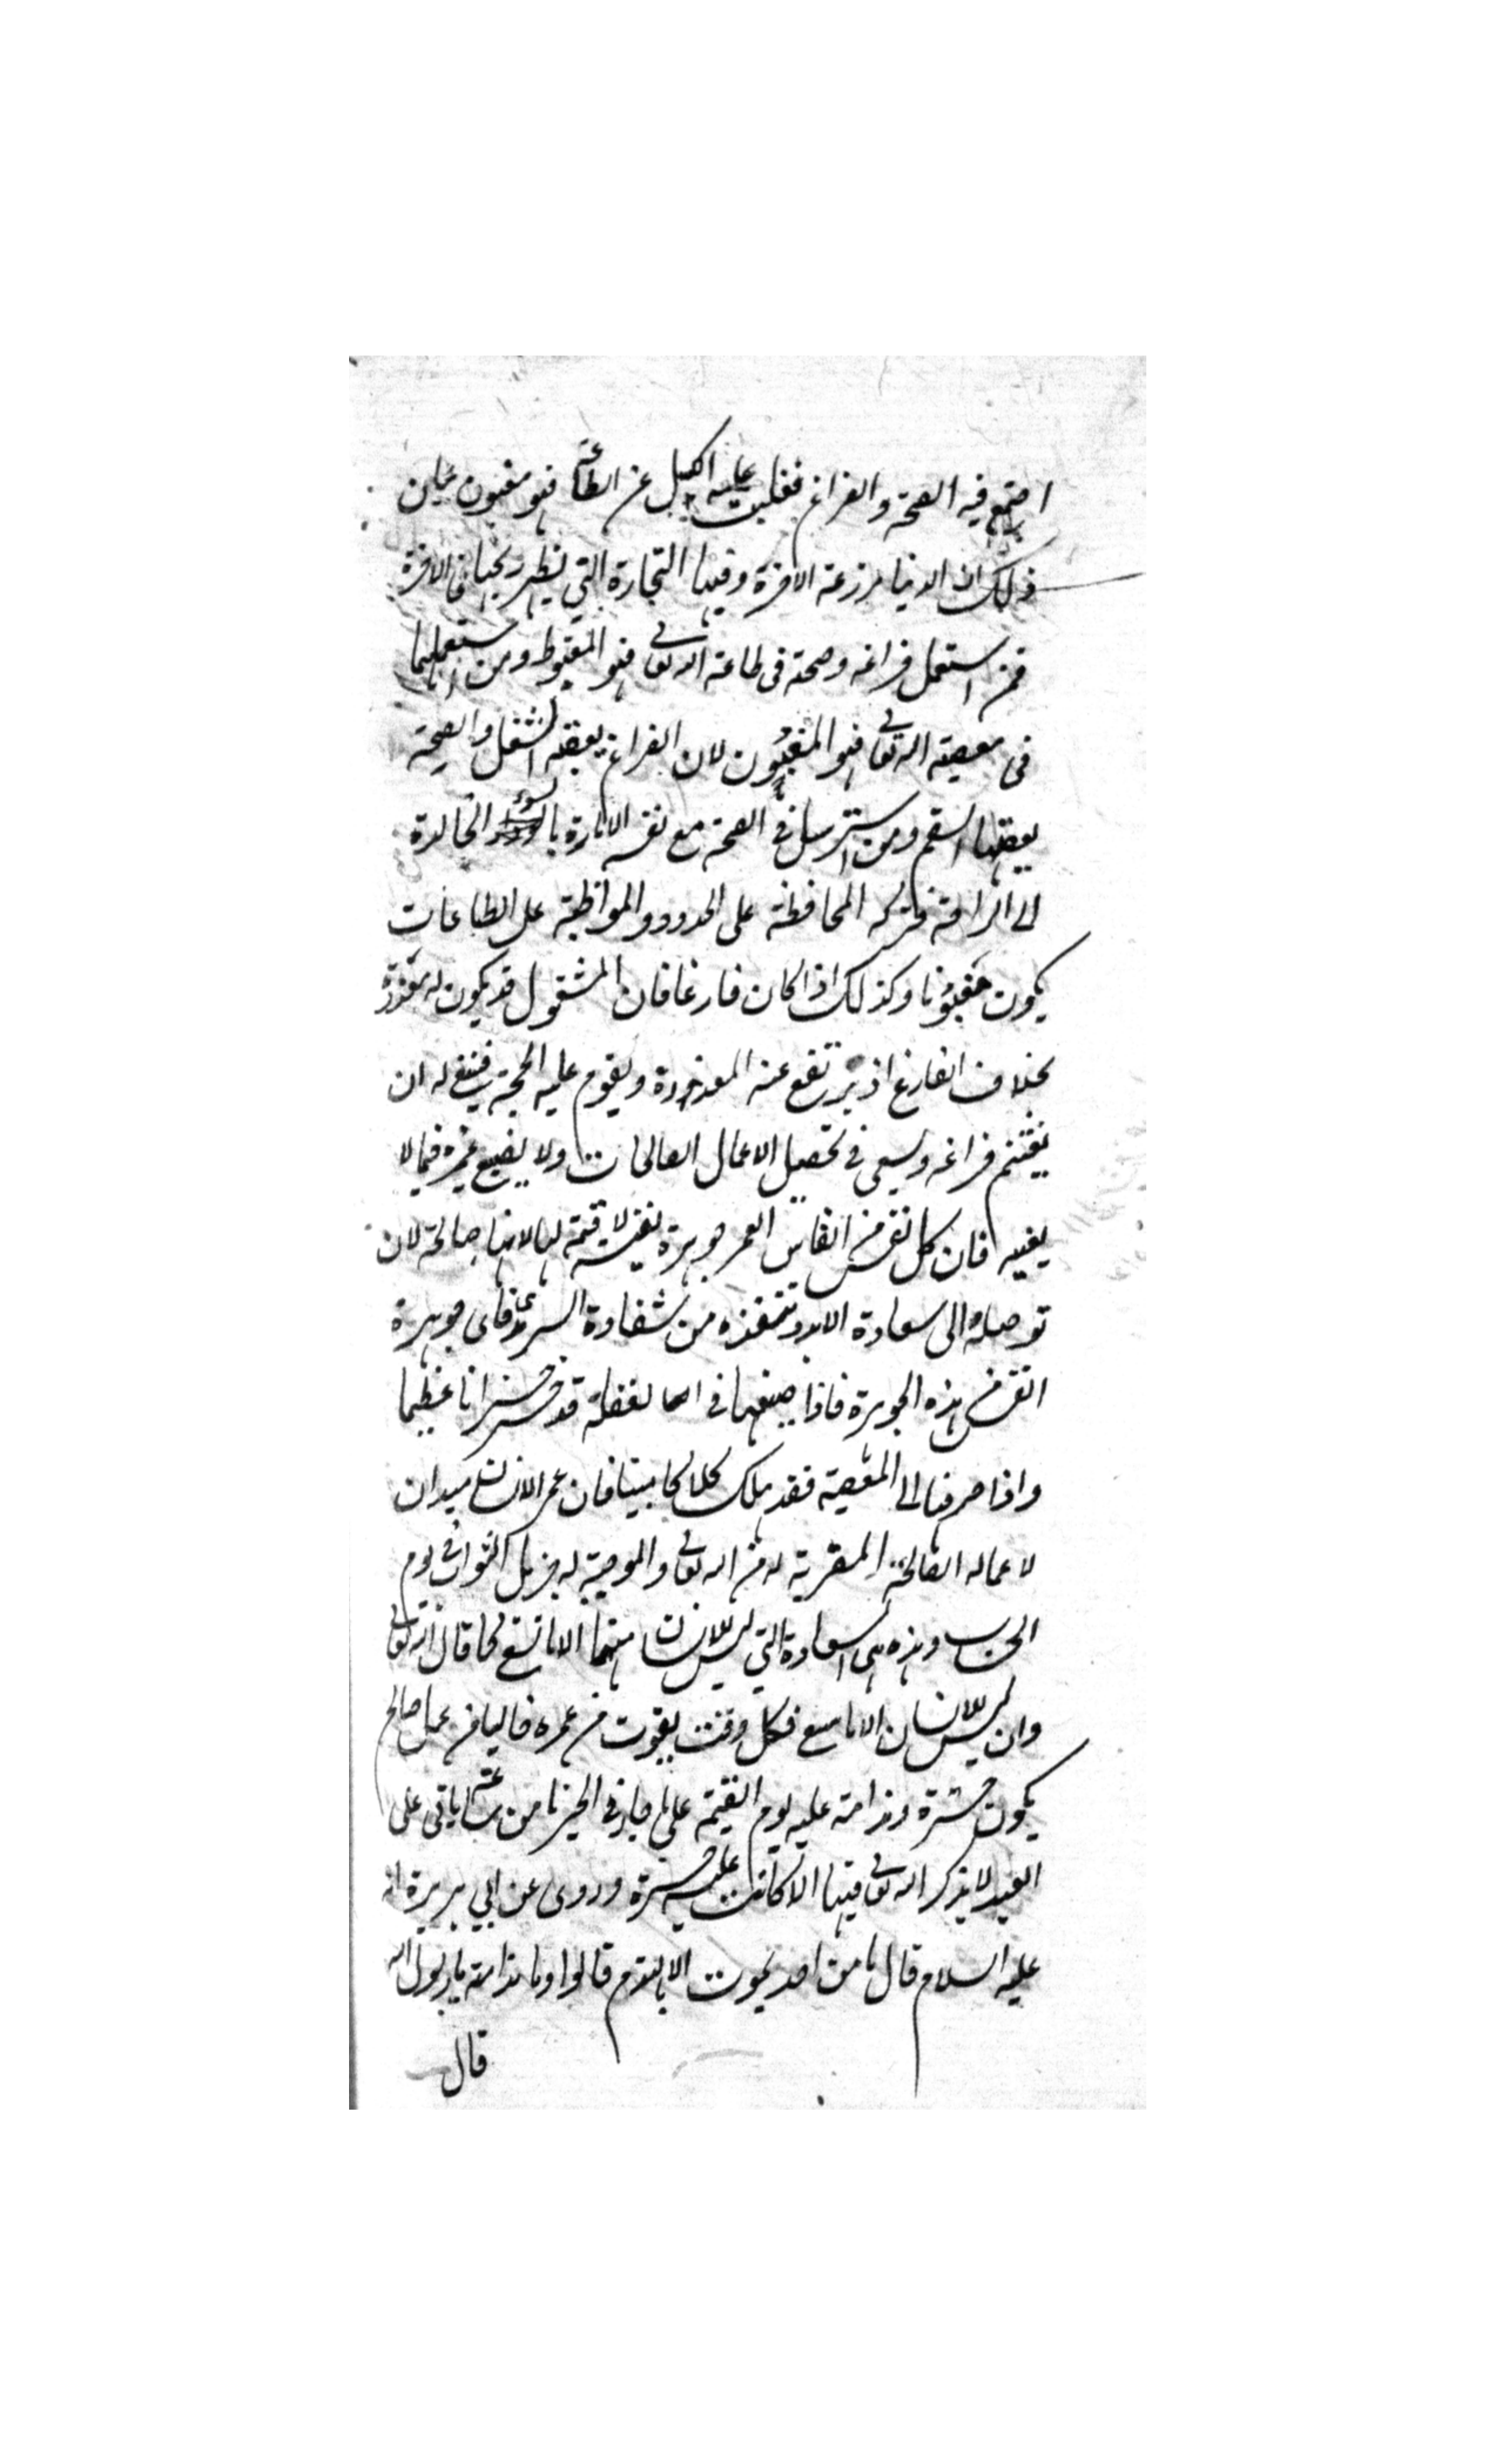 اجتمع فيه الصحة والفراغ فغلبت عليه الكسل عن الطاعة فهو مغبون بيان
ذلك ان الدنيا مزرعة الاخرة وفيها التجارة التي يظهر ربحها في الاخرة
فمن استعمل فراغه وصحته في طاعة الله تعالى فهو المغبوط ومن استعملهما
في معصية الله تعالى فهو المغبون لان الفراغ يعقبه الشغل والصحة
يعقبها السقم ومن استرسل في الصحة مع نفسه الامارة بالسوء الخالدة
الى الراحة فترك المحافظة على الحدود والمواظبة على الطاعات
يكون مغبونا وكذلك اذا كان فارغا فان المشغول قد يكون له معذرة
بخلاف الفارغ اذ يرتفع عنه المعذرة ويقوم عليه الحجة فينبغي له ان
يغتنم فراغه ويسعى في تحصيل الاعمال الصالحات ولا يضيع عمره فيما لا
يعنيه فان كل نفس من انفاس العمر جوهرة نفيسة لا قيمة لها لانها صالحة لان
توصله الى سعادة الابد وتنقذه من شقاوة السرمد فاي جوهرة
انفس من هذه الجوهرة فاذا ضيعها في الغفلة قد خسر خسرانا عظيما
واذا صرفها الى المعصية فقد هلك هلاكا مبينا فان عمر الانسان ميدان
لاعماله الصالحة المقربة له من الله تعالى والموجبة له جزيل الثواب في يوم
الحساب وهذه هي السعادة التي ليس للانسان منها الا ما سعى كما قال الله تعالى
وان ليس للانسان الا ما سعى فكل وقت يفوت من عمره خاليا من عمل صالح
يكون حسرة وندامة عليه يوم القيمة على ما جاء في الخبر ما من ساعة ياتي على
العبد لا يذكر الله تعالى فيها الا كانت عليه حسرة وروى عن ابي هريرة انه
عليه السلام قال ما من احد يموت الا يندم قالوا وما ندامته يا رسول الله
قال